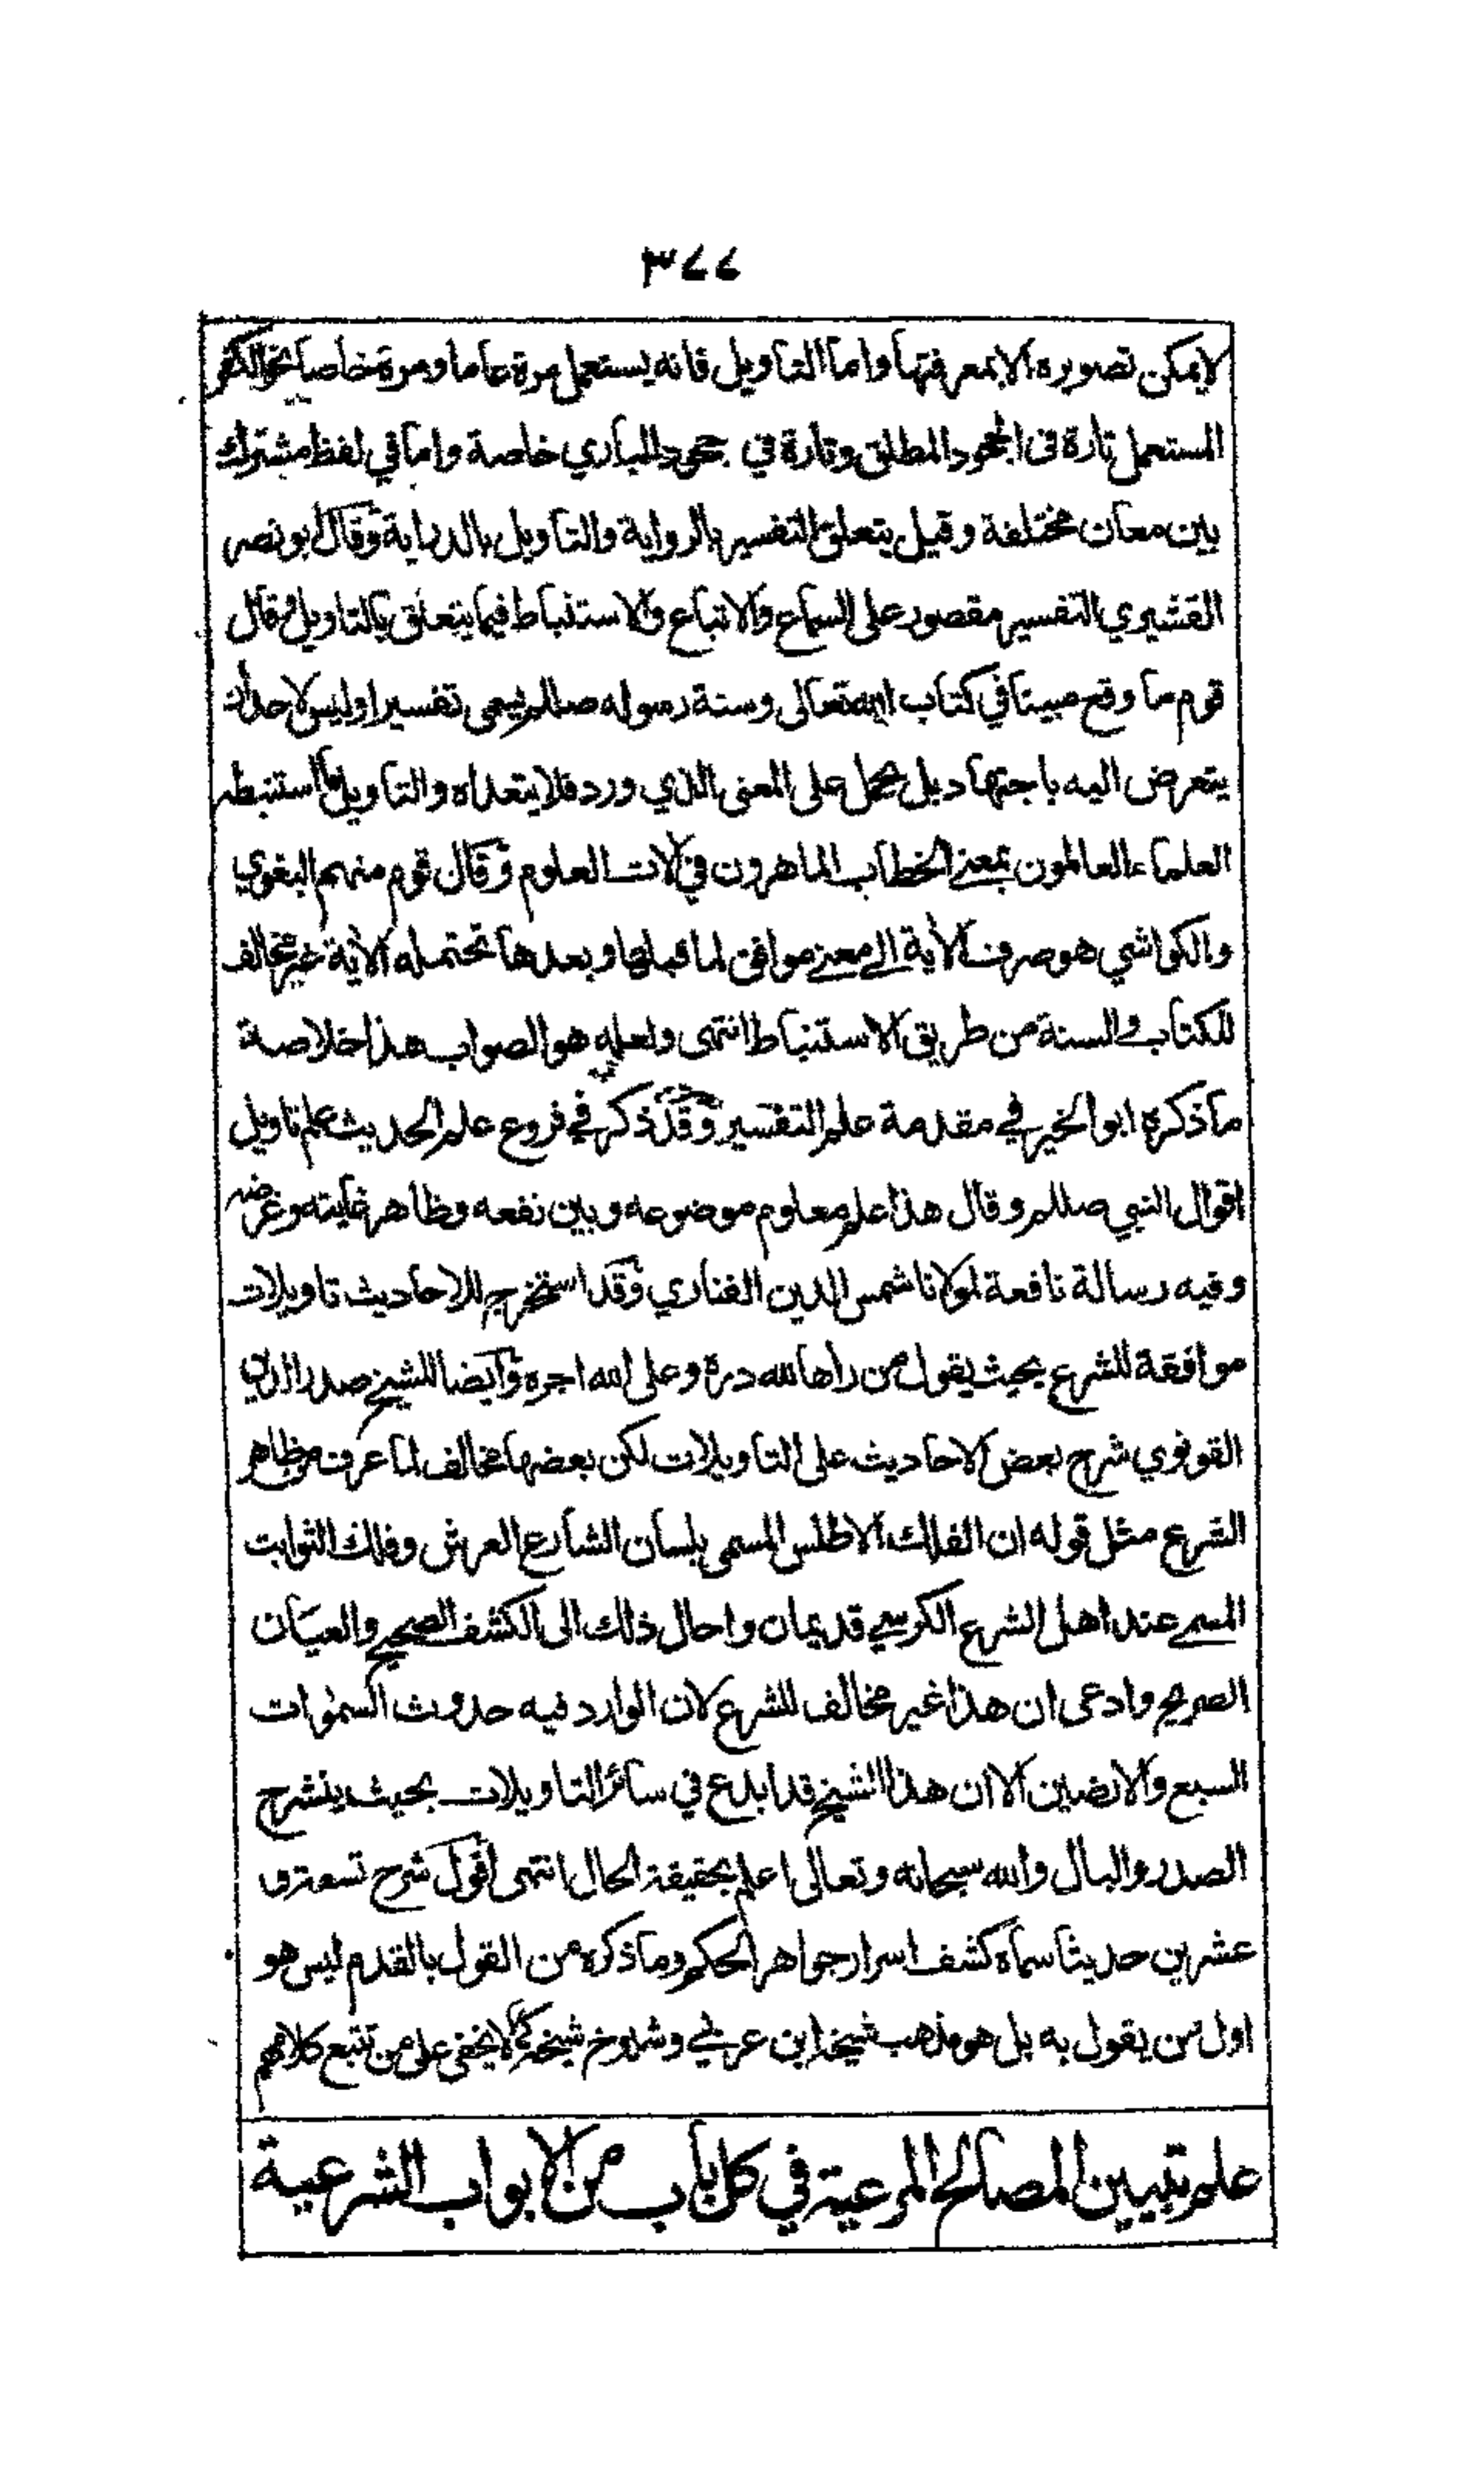 ٣٧٧
لا يمكن تصويره الا بمعرفتها واما التاويل فانه يستعمل مرة عاما ومرة خاصا نحو الكفر
المستعمل تارة فى الجحود المطلق وتارة في جحود الباري خاصة واما في لفظ مشترك
بين معان مختلفة وقيل يتعلق التفسير بالرواية والتاويل بالدراية وقال ابو نصر
القشيري التفسير مقصور على السماع والاتباع والاستنباط فيما يتعلق بالتاويل وقال
قوم ما وقع مبينا في كتاب الله تعالى وسنة رسوله صللم يسمى تفسيرا وليس لاحد ان
يتعرض اليه باجتهاد بل يحمل على المعنى الذي ورد فلا يتعداه والتاويل ما استنبطه
العلماء العالمون بمعنى الخطاب الماهرون في آلات العلوم وقال قوم منهم البغوي
والكواشي هو صرف الآية الى معنى موافق لما قبلها وبعدها تحتمله الآية غير مخالف
للكتاب والسنة من طريق الاستنباط انتهى ولعله هو الصواب هذا خلاصة
ما ذكره ابو الخير في مقدمة علم التفسير وقد ذكر في فروع علم الحديث علم تاويل
اقوال النبي صللم وقال هذا علم معلوم موضوعه وبين نفعه وظاهر غايته وغرضه
وفيه رسالة نافعة لمولانا شمس الدين الفناري وقد استخرج للاحاديث تاويلات
موافقة للشرع بحيث يقول من راها لله دره وعلى الله اجره وايضا للشيخ صدر الدين
القونوي شرح بعض الاحاديث على التاويلات لكن بعضها مخالف لما عرف من ظاهر
الشرع مثل قوله ان الفلك الاطلس المسمى بلسان الشارع العرش وفلك الثوابت
المسمى عند اهل الشرع الكرسي قديمان واحال ذلك الى الكشف الصحيح والعيان
الصريح وادعى ان هذا غير مخالف للشرع لان الوارد فيه حدوث السموات
السبع والارضين الا ان هذا الشيخ قد ابدع في سائر التاويلات بحيث ينشرح
الصدر والبال والله سبحانه وتعالى اعلم بحقيقة الحال انتهى اقول شرح تسعة و
عشرين حديثا سماه كشف اسرار جواهر الحكم وما ذكره من القول بالقدم ليس هو
اول من يقول به بل هو مذهب شيخه ابن عربي وشيوخ شيخه كما لا يخفى على من تتبع كلامهم
علم تبيين المصالح المرعية في كل باب من الابواب الشرعية